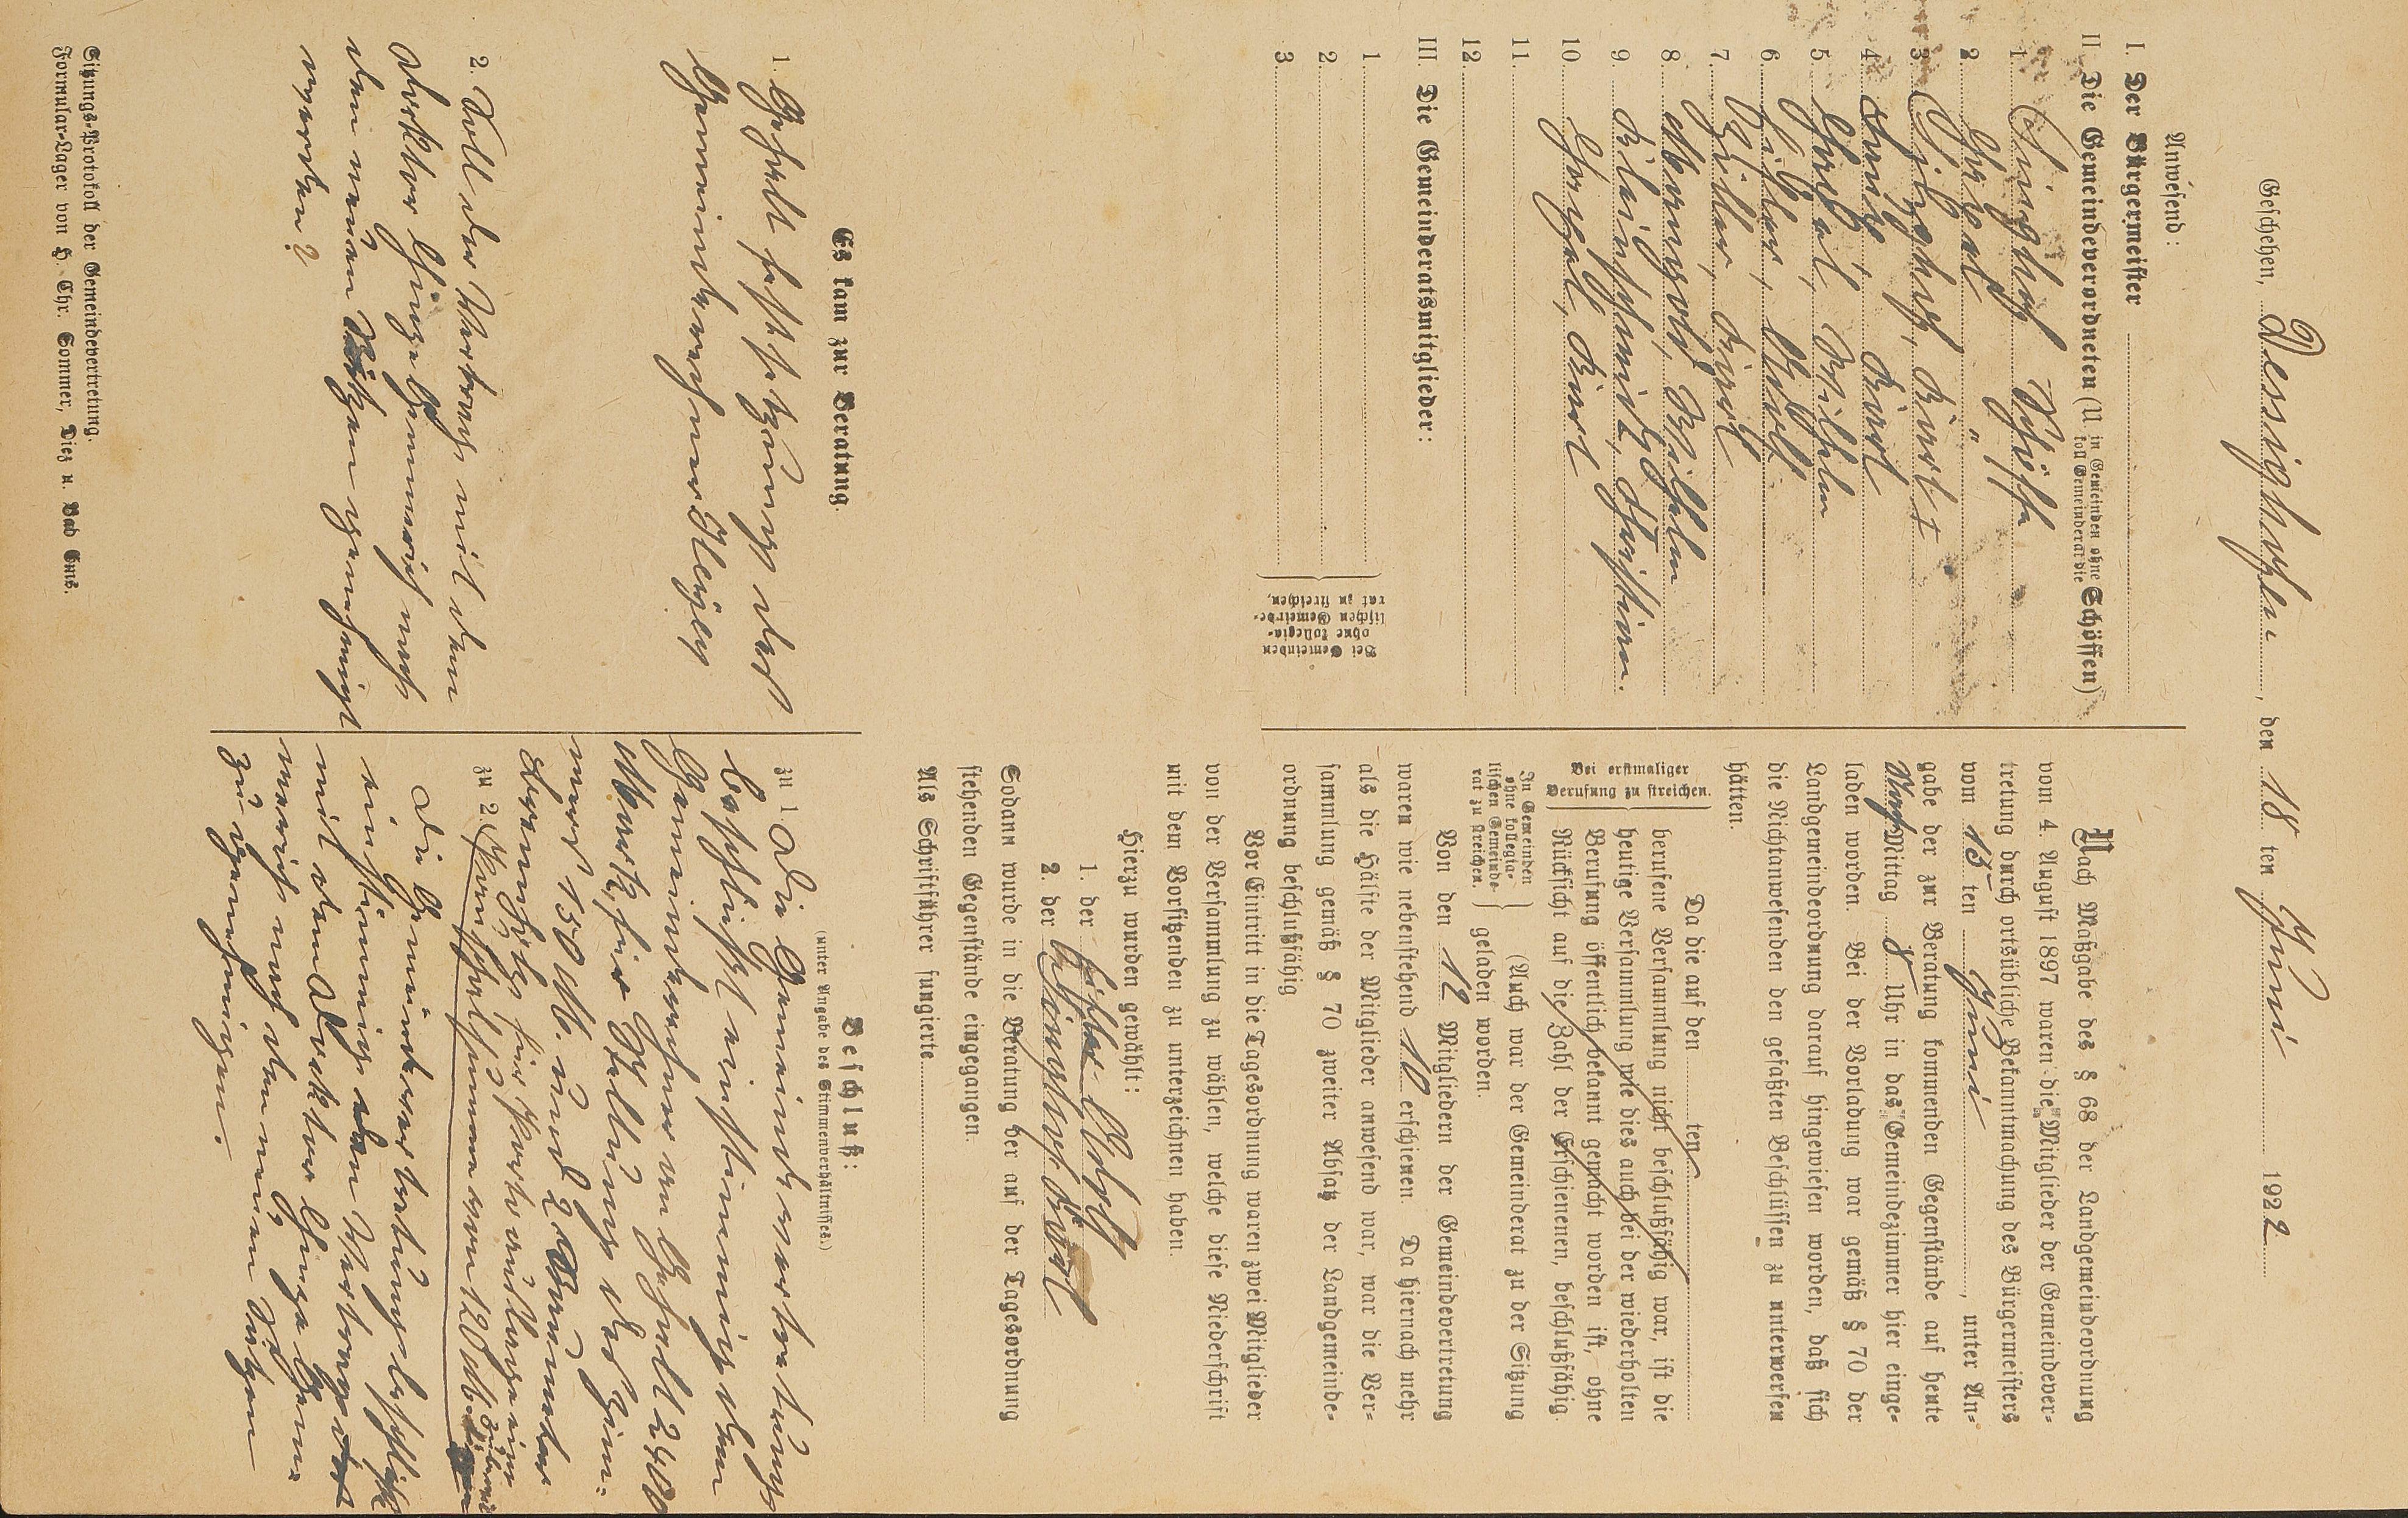 Geschehen, Dessighofen, den 18 ten Juni 1922
Anwesend:
I. Der Bürgermeister
II. Die Gemeindeverordneten (U in Gemeinden ohne
koll Gemeinderat die Schöffen)
1. Schöffe
2. "
3. Karl
4. Karl
5. Wilhelm
6. Adolf
7. Karl
8. Wilhelm
9. Kleinschmidt, Christian.
10. Karl
11.
12.
III. Die Gemeinderatsmitglieder:
1.
2.
3.
Bei Gemeinden
ohne kollegia-
lischen Gemeinde-
rat zu streichen,
Nach Maßgabe des § 68 der Landgemeindeordnung
vom 4. August 1897 waren die Mitglieder der Gemeindever-
tretung durch ortsübliche Bekanntmachung des Bürgermeisters
vom 15 ten Juni, unter An-
gabe der zur Beratung kommenden Gegenstände auf heute
Nach Mittag 8 Uhr in das Gemeindezimmer hier einge-
laden worden. Bei der Vorladung war gemäß § 70 der
Landgemeindeordnung darauf hingewiesen worden, daß sich
die Nichtanwesenden den gefaßten Beschlüssen zu unterwerfen
hätten.
Bei erstmaliger
Berufung zu streichen.
Da die auf den ten
berufene Versammlung nicht beschlußfähig war, ist die
heutige Versammlung wie dies auch bei der wiederholten
Berufung öffentlich bekannt gemacht worden ist, ohne
Rücksicht auf die Zahl der Erschienenen, beschlußfähig.
In Gemeinden
ohne kollegia-
lischen Gemeinde-
rat zu streichen.
(Auch war der Gemeinderat zu der Sitzung
geladen worden.
Von den 12 Mitgliedern der Gemeindevertretung
waren wie nebenstehend 10 erschienen. Da hiernach mehr
als die Hälfte der Mitglieder anwesend war, war die Ver-
sammlung gemäß § 70 zweiter Absatz der Landgemeinde-
ordnung beschlußfähig
Vor Eintritt in die Tagesordnung waren zwei Mitglieder
von der Versammlung zu wählen, welche diese Niederschrift
mit dem Vorsitzenden zu unterzeichnen haben.
Hierzu wurden gewählt:
1. der Adolf
2. der Karl
Sodann wurde in die Beratung der auf der Tagesordnung
stehenden Gegenstände eingegangen.
Als Schriftführer fungierte
Es kam zur Beratung.
1. Gehalt festsetzung des
Gemeinderechner
2. Soll der Vertrag mit dem
Doktor nach
den neuen Sätzen genehmigt
werden?
Beschluß:
(unter Angabe des Stimmenverhältnisses.)
zu 1. Die Gemeindevertretung
beschließt einstimmig dem
Gemeinderechner an Gehalt 2400
Mark, für Stellung des Zim-
mers 150 M. und
Brennholz, für Porto auslage eine
zu 2. Pauschalsumme von 120 M.
Die Gemeindevertretung beschließt
einstimmig den Vertrag
mit dem Doktor
nach den neuen Sätzen
zu genehmigen.
Sitzungs-Protokoll der Gemeindevertretung.
Formular-Lager von H. Chr. Sommer, Diez u. Bad Ems.